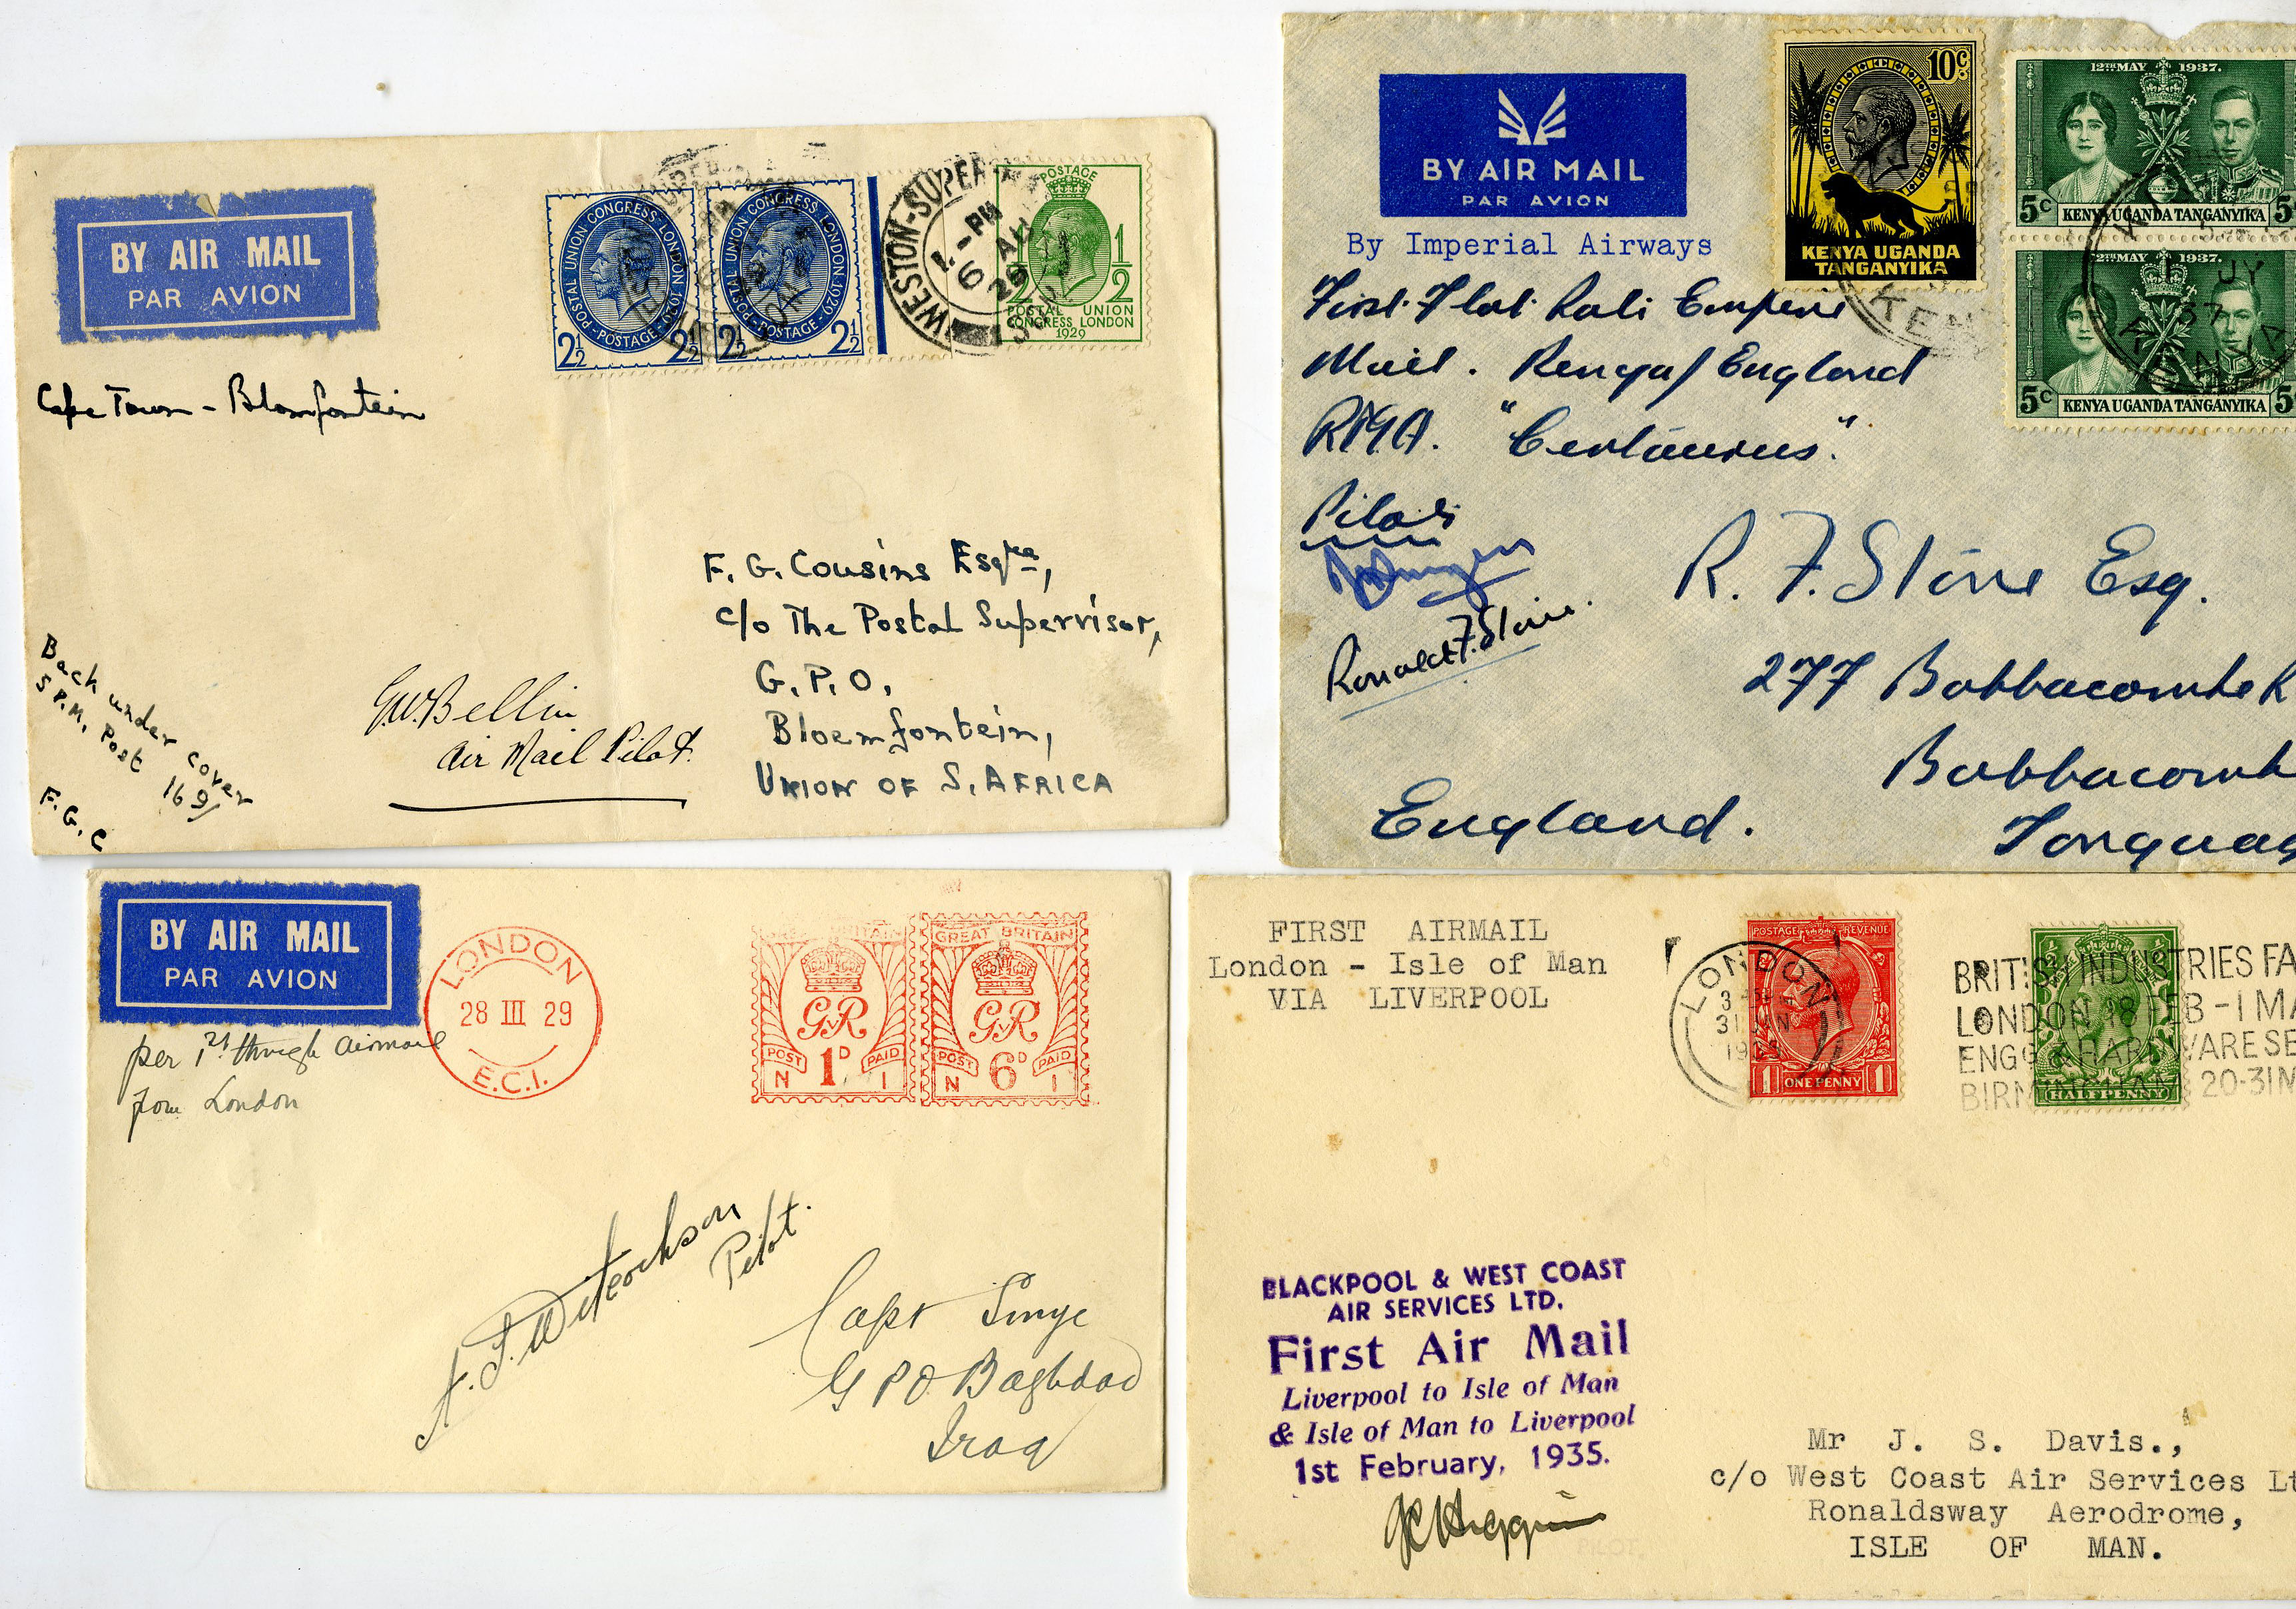 BY AIR MAIL
PAR AVION
Cape Town - Blomfontein
POSTAL UNION CONGRESS LONDON 1929
POSTAGE
2½ 2½
POSTAL UNION CONGRESS LONDON 1929
POSTAGE
2½ 2½
WESTON-SUPER-
1 - PM
6
29
POSTAGE
1/2 1/2
POSTAL UNION
CONGRESS LONDON
1929
F. G. Cousins Esqre,
c/o The Postal Supervisor,
G. P. O,
Bloemfontein,
UNION OF S. AFRICA
G.W. Bellin
Air Mail Pilot.
Back under cover
5 P.M. Post 16 9/
F. G. C
BY AIR MAIL
PAR AVION
By Imperial Airways
10c
KENYA UGANDA
TANGANYIKA
12TH MAY 1937.
5c KENYA UGANDA TANGANYIKA 5
12TH MAY 1937.
5c KENYA UGANDA TANGANYIKA 5
1 JY
37
KENYA
First Flat Rate Empire
Mail. Kenya/England
RMA. "Centaurus".
Pilots
Ronald F. Stone.
R. F. Stone Esq.
277 Babbacombe R
Babbacomb
Torquay
England.
BY AIR MAIL
PAR AVION
per 1st through airmail
from London
LONDON
28 III 29
E.C.1.
GREAT BRITAIN
GvR
POST 1D PAID
N 1
GREAT BRITAIN
GvR
POST 6D PAID
N 1
Pilot.
Capt
G P O Baghdad
Iraq
FIRST AIRMAIL
London - Isle of Man
VIA LIVERPOOL
LONDON
31 JAN
1935
POSTAGE REVENUE
1 ONE PENNY 1
HALFPENNY
BRITISH INDUSTRIES FA
LONDON 18 FEB - 1 MA
ENGG & HARDWARE SE
BIRMINGHAM 20-31 M
BLACKPOOL & WEST COAST
AIR SERVICES LTD.
First Air Mail
Liverpool to Isle of Man
& Isle of Man to Liverpool
1st February, 1935.
PILOT.
Mr J. S. Davis.,
c/o West Coast Air Services Lt
Ronaldsway Aerodrome,
ISLE OF MAN.